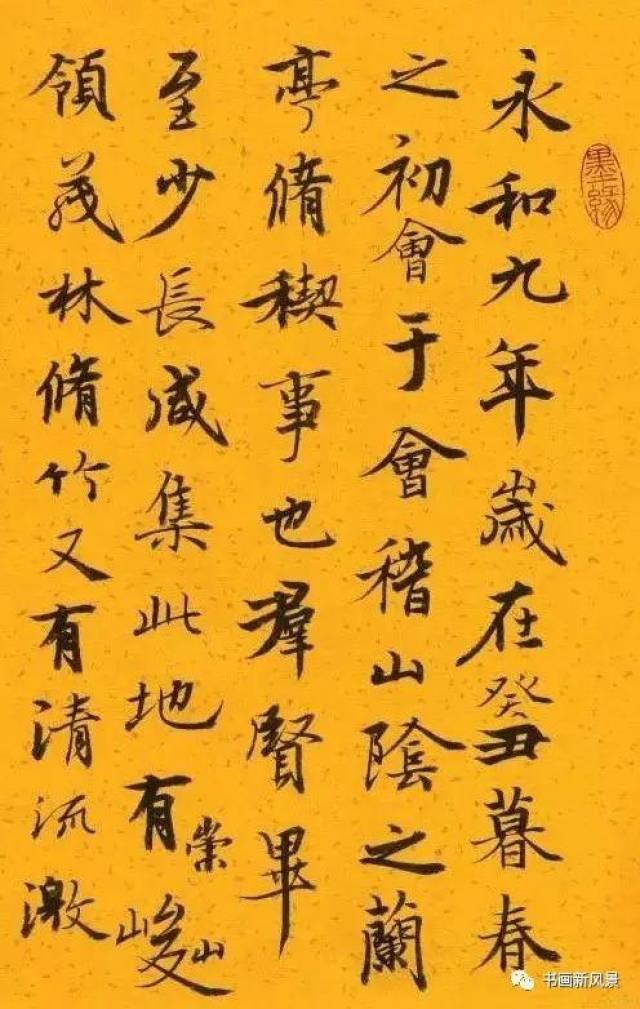 永和九年歲在癸丑暮春
之初會于會稽山陰之蘭
亭脩稧事也羣賢畢
至少長咸集此地有崇峻山
領茂林脩竹又有清流激
墨緣
书画新风景